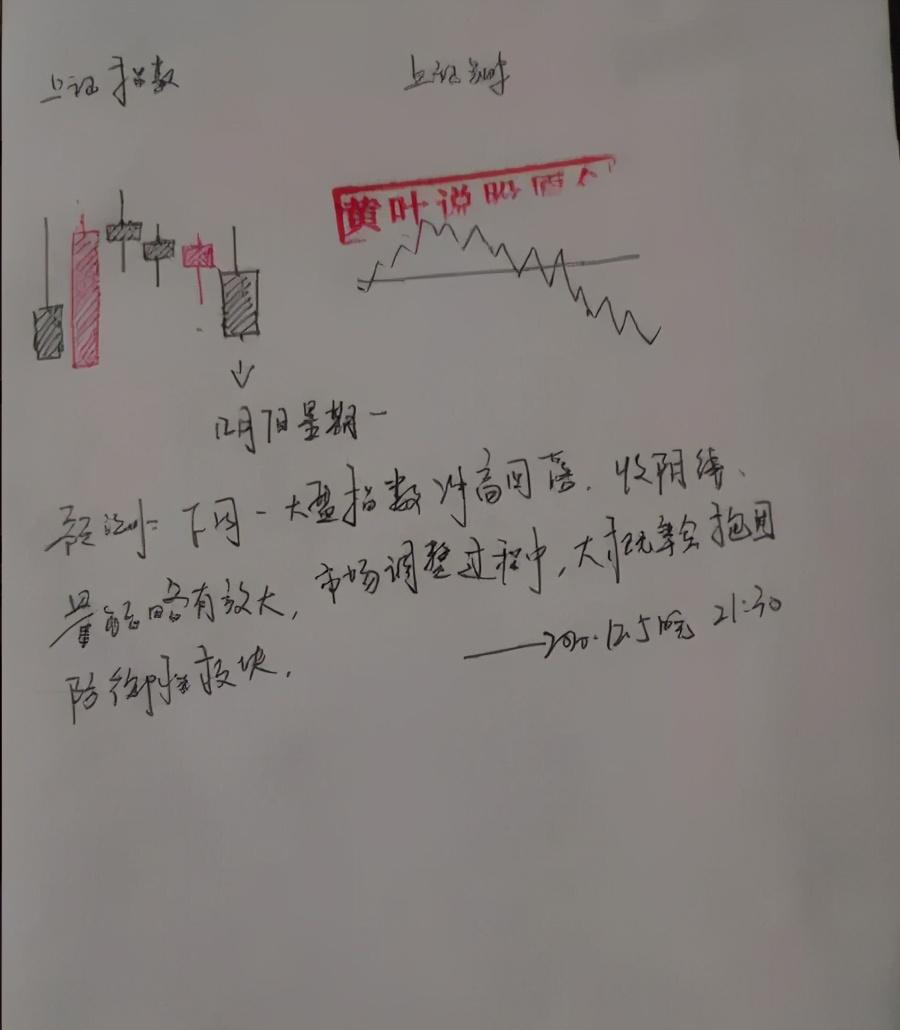 上证指数
上证分时
黄叶说股
12月7日星期一
预测：下周一大盘指数冲高回落．收阴线、
量能略有放大，市场调整过程中，大概率会抱团
防御性板块．
——2020.12.5晚 21:30